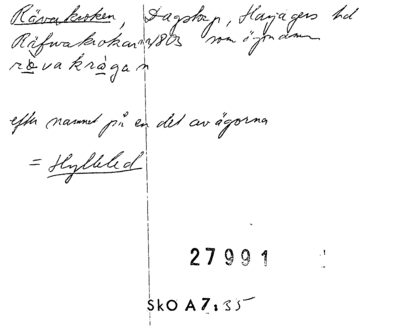 Rävakroken, Dagstorp, Harjagers hd
Räfwakrokarn 1/803 som ägonamn
rävakrågan
efter namnet på en del av ägorna
= Hylteled
27991
SkO A7:35